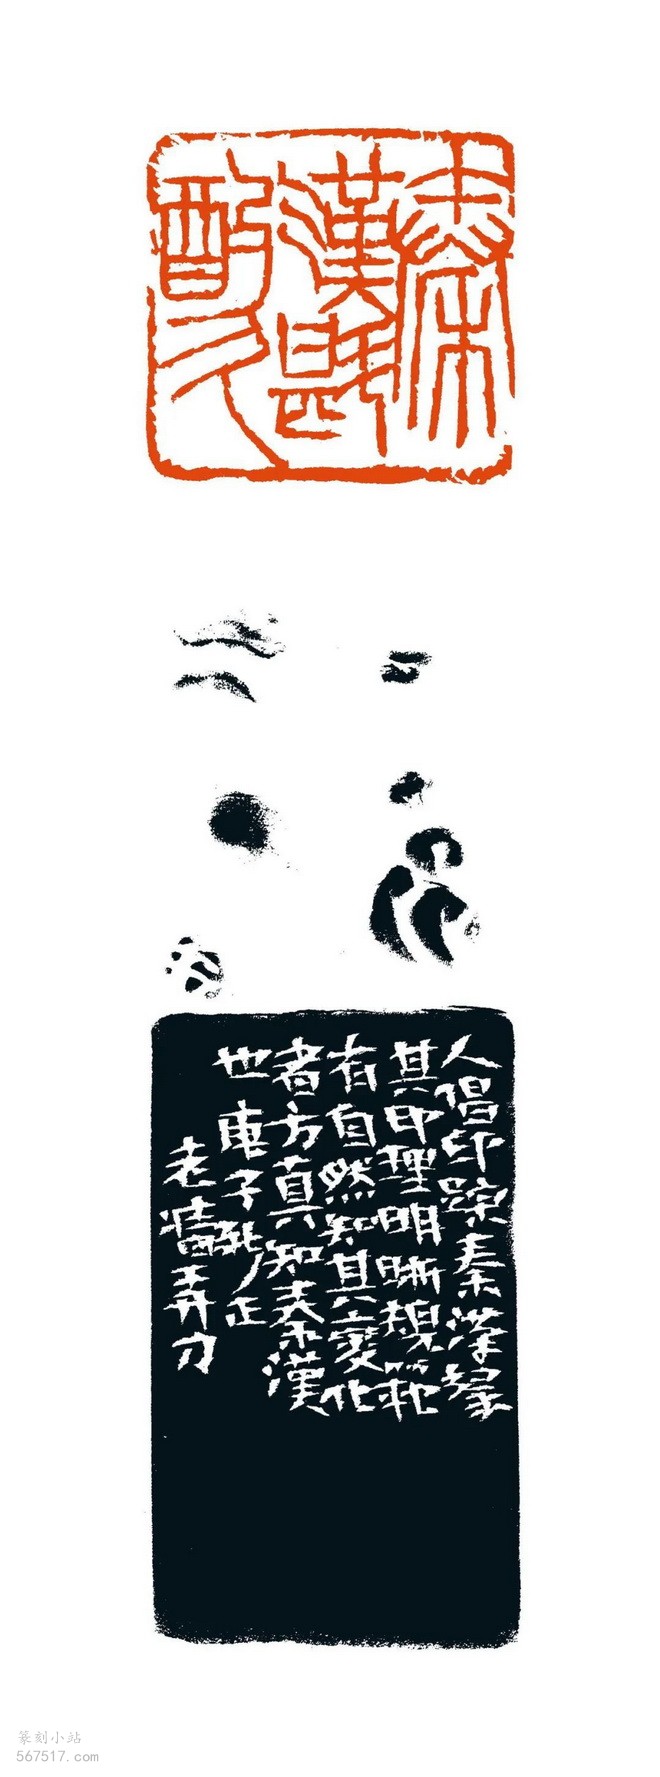 秦
漢斟
酌
人倡印踪秦漢緣
其印理明晰規範
有自然知其變化
者方真知秦漢
也 子 正
老 弄刀
篆刻小站
567517.com